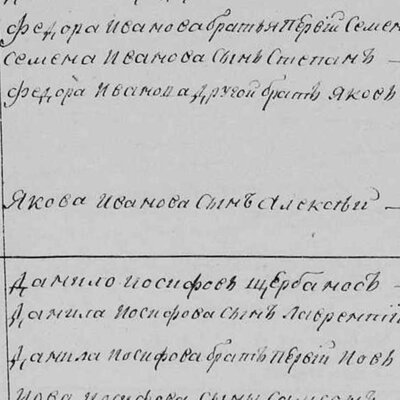 Федора Иванова братья первiй Семен
Семена Иванова сынъ Степанъ
Федора Иванова другой братъ Яковъ
Якова Иванова сынъ Алексѣй
Данило Иосифовъ Щербаносъ
Данила Иосифова сынъ Лаврентiй
Данила Иосифова братъ первiй Иовъ
Иова Иосифова сынъ